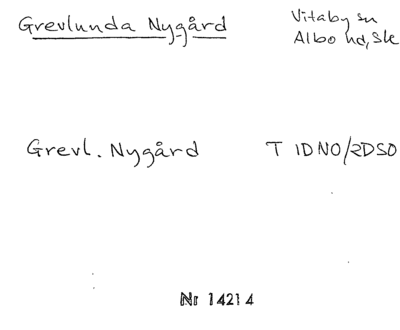 Grevlunda Nygård
Vitaby sn
Albo hd, Sk
Grevl. Nygård
T 1DNO/2DSO
Nr 14214